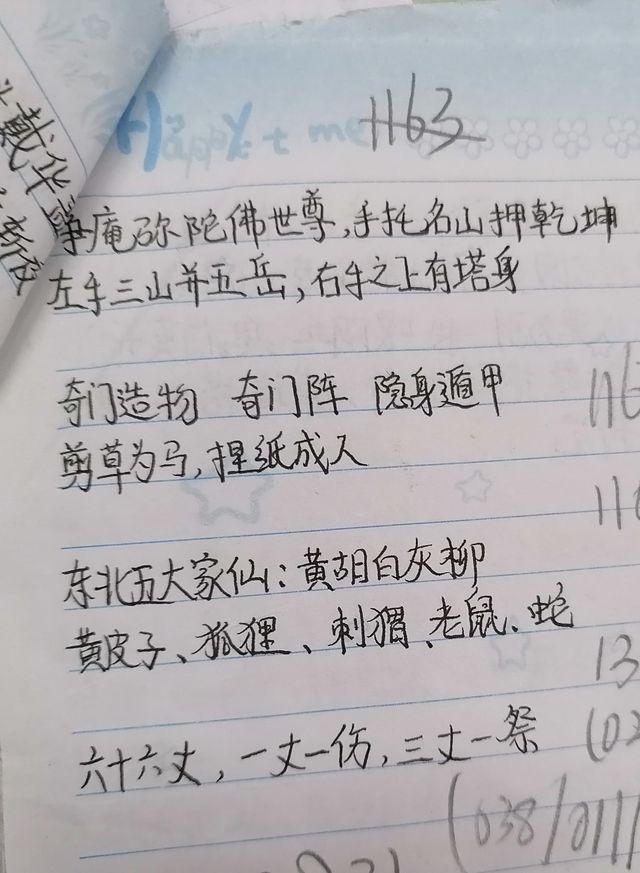 Happy + me
1163
戴华
庵弥陀佛世尊,手托名山押乾坤
左手三山并五岳,右手之上有塔身
奇门造物 奇门阵 隐身遁甲
116
剪草为马,捏纸成人
11
东北五大家仙:黄胡白灰柳
黄皮子、狐狸、刺猬、老鼠、蛇
13
六十六丈,一丈一伤,三丈一祭
(02
(038/0111/